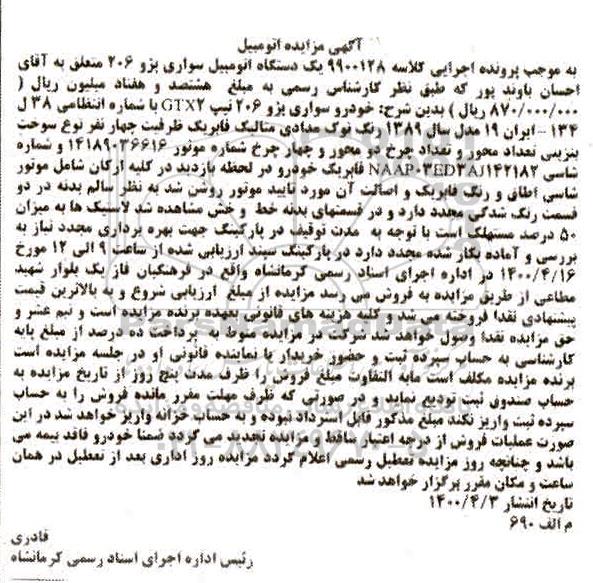 آگهی مزایده اتومبیل
به موجب پرونده اجرایی کلاسه ۹۹۰۰۱۲۸ یک دستگاه اتومبیل سواری پژو ۲۰۶ متعلق به آقای
احسان باوند پور که طبق نظر کارشناس رسمی به مبلغ هشتصد و هفتاد میلیون ریال (
۸۷۰/۰۰۰/۰۰۰ ریال ) بدین شرح: خودرو سواری پژو ۲۰۶ تیپ GTX2 با شماره انتظامی ۳۸ ل
۱۳۴ – ایران ۱۹ مدل سال ۱۳۸۹ رنگ نوک مدادی متالیک فابریک ظرفیت چهار نفر نوع سوخت
بنزینی تعداد محور و تعداد چرخ دو محور و چهار چرخ شماره موتور ۱۴۱۸۹۰۳۶۶۱۶ و شماره
شاسی NAAP03ED3AJ142182 فابریک خودرو در لحظه بازدید در کلیه ارکان شامل موتور
شاسی اطاق و رنگ فابریک و اصالت آن مورد تایید موتور روشن شد به نظر سالم بدنه در دو
قسمت رنگ شدگی مجدد دارد و در قسمتهای بدنه خط و خش مشاهده شد لاستیک ها به میزان
۵۰ درصد مستهلک است با توجه به مدت توقیف در پارکینگ جهت بهره برداری مجدد نیاز به
بررسی و آماده بکار شده مجدد دارد در پارکینگ سپند ارزیابی شده از ساعت ۹ الی ۱۲ مورخ
۱۴۰۰/۴/۱۶ در اداره اجرای اسناد رسمی کرمانشاه واقع در فرهنگیان فاز یک بلوار شهید
مطاعی از طریق مزایده به فروش می رسد مزایده از مبلغ ارزیابی شروع و به بالاترین قیمت
پیشنهادی نقدا فروخته می شد و کلیه هزینه های قانونی بعهده برنده مزایده است و نیم عشر و
حق مزایده نقدا وصول خواهد شد شرکت در مزایده منوط به پرداخت ده درصد از مبلغ پایه
کارشناسی به حساب سپرده ثبت و حضور خریدار یا نماینده قانونی او در جلسه مزایده است
برنده مزایده مکلف است مابه التفاوت مبلغ فروش را ظرف مدت پنج روز از تاریخ مزایده به
حساب صندوق ثبت تودیع نماید و در صورتی که ظرف مهلت مقرر مانده فروش را به حساب
سپرده ثبت واریز نکند مبلغ مذکور قابل استرداد نبوده و به حساب خزانه واریز خواهد شد در این
صورت عملیات فروش از درجه اعتبار ساقط و مزایده تجدید می گردد ضمنا خودرو فاقد بیمه می
باشد و چنانچه روز مزایده تعطیل رسمی اعلام گردد مزایده روز اداری بعد از تعطیل در همان
ساعت و مکان مقرر برگزار خواهد شد
تاریخ انتشار ۱۴۰۰/۴/۳
م الف ۶۹۰
قادری
رئیس اداره اجرای اسناد رسمی کرمانشاه